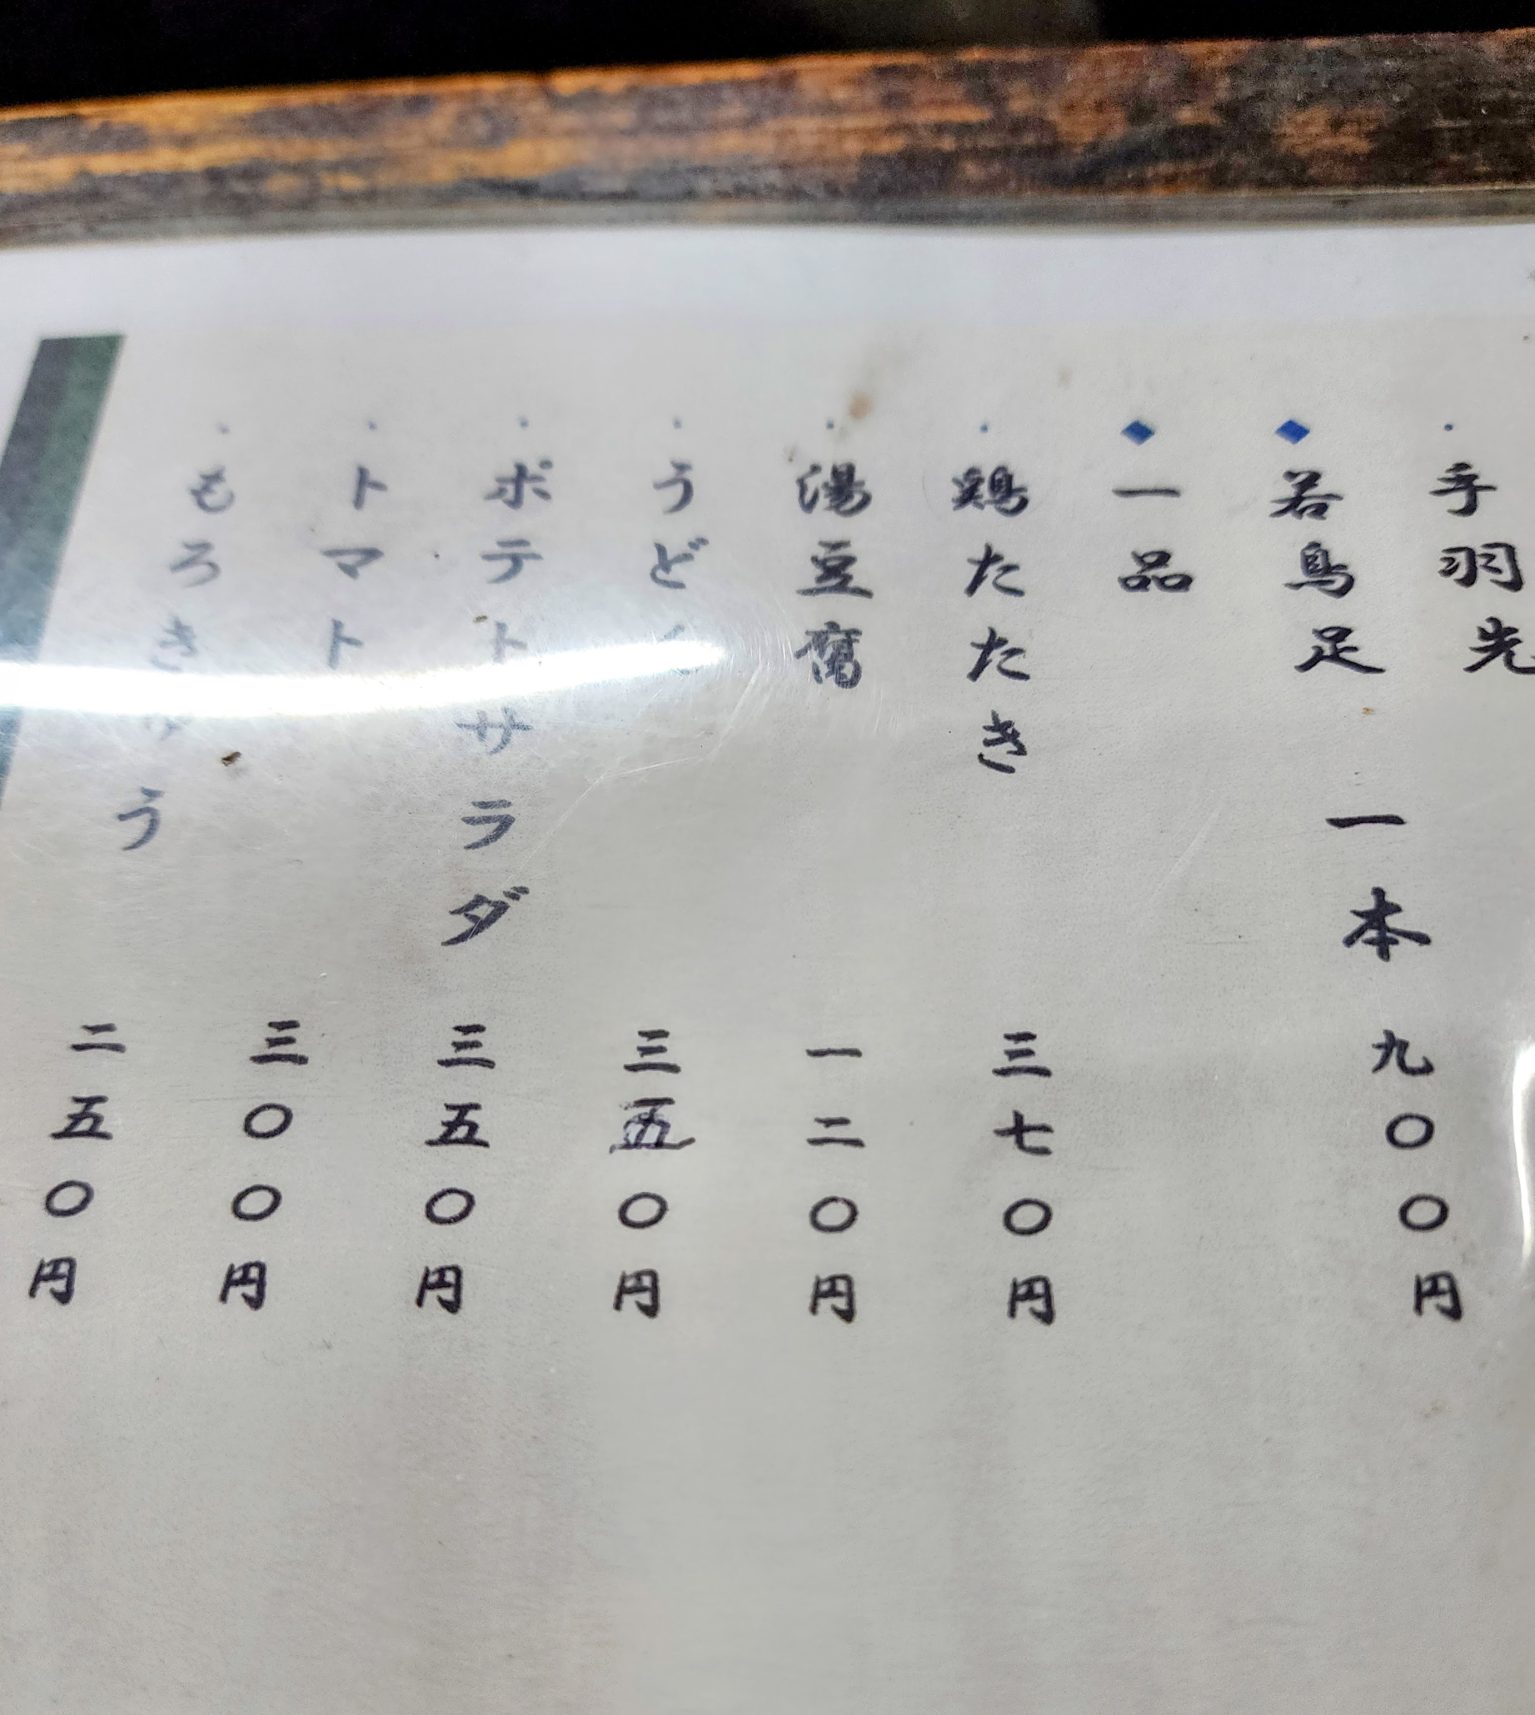 ・手羽先
◆若鳥足 一本 九〇〇円
◆一品
・鶏たたき 三七〇円
・湯豆腐 一二〇円
・うどく 三五〇円
・ポテトサラダ 三五〇円
・トマト 三〇〇円
・もろきゅう 二五〇円